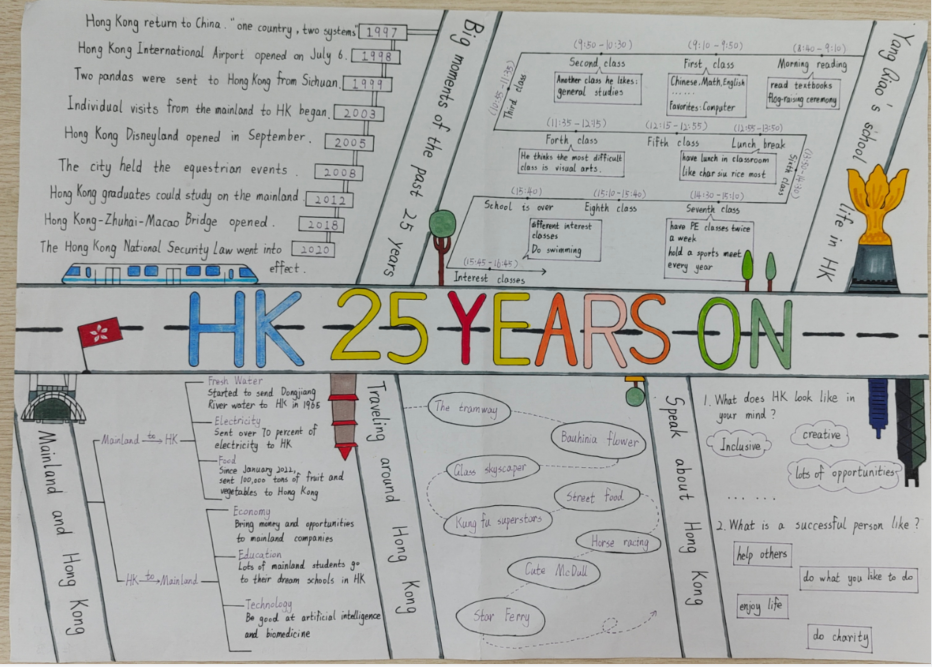 Hong Kong return to China. "one country, two systems" 1997
Hong Kong International Airport opened on July 6. 1998
Two pandas were sent to Hong Kong from Sichuan. 1999
Individual visits from the mainland to HK began. 2003
Hong Kong Disneyland opened in September. 2005
The city held the equestrian events. 2008
Hong Kong graduates could study on the mainland 2012
Hong Kong-Zhuhai-Macao Bridge opened. 2018
The Hong Kong National Security Law went into 2020
effect.
Big moments of the past 25 years
(8:40-9:10)
Morning reading
read textbooks
flag-raising ceremony
(9:10-9:50)
First class
Chinese, Math, English
......
Favorites: Computer
(9:50-10:30)
Second class
Another class he likes:
general studies
(10:55-11:35)
Third class
(11:35-12:15)
Forth class
He thinks the most difficult
class is visual arts.
(12:15-12:55)
Fifth class
(12:55-13:50)
Lunch break
have lunch in classroom
like char siu rice most
Sixth class
(14:30-15:10)
Seventh class
have PE classes twice
a week
hold a sports meet
every year
(15:10-15:40)
Eighth class
(15:40)
School is over
different interest
classes
Do swimming
(15:45-16:45)
Interest classes
Yang Qiao's school life in HK
HK 25 YEARS ON
Mainland and Hong Kong
Mainland to HK
Fresh Water
Started to send Dongjiang
River water to HK in 1965
Electricity
Sent over 70 percent of
electricity to HK
Food
Since January 2022,
sent 100,000 tons of fruit and
vegetables to Hong Kong
HK to Mainland
Economy
Bring money and opportunities
to mainland companies
Education
Lots of mainland students go
to their dream schools in HK
Technology
Be good at artificial intelligence
and biomedicine
Traveling around Hong Kong
The tramway
Bauhinia flower
Glass skyscaper
Street food
Kung fu superstars
Horse racing
Cute McDull
Star Ferry
Speak about Hong Kong
1. What does HK look like in
your mind?
Inclusive
creative
lots of opportunities
......
2. What is a successful person like?
help others
do what you like to do
enjoy life
do charity